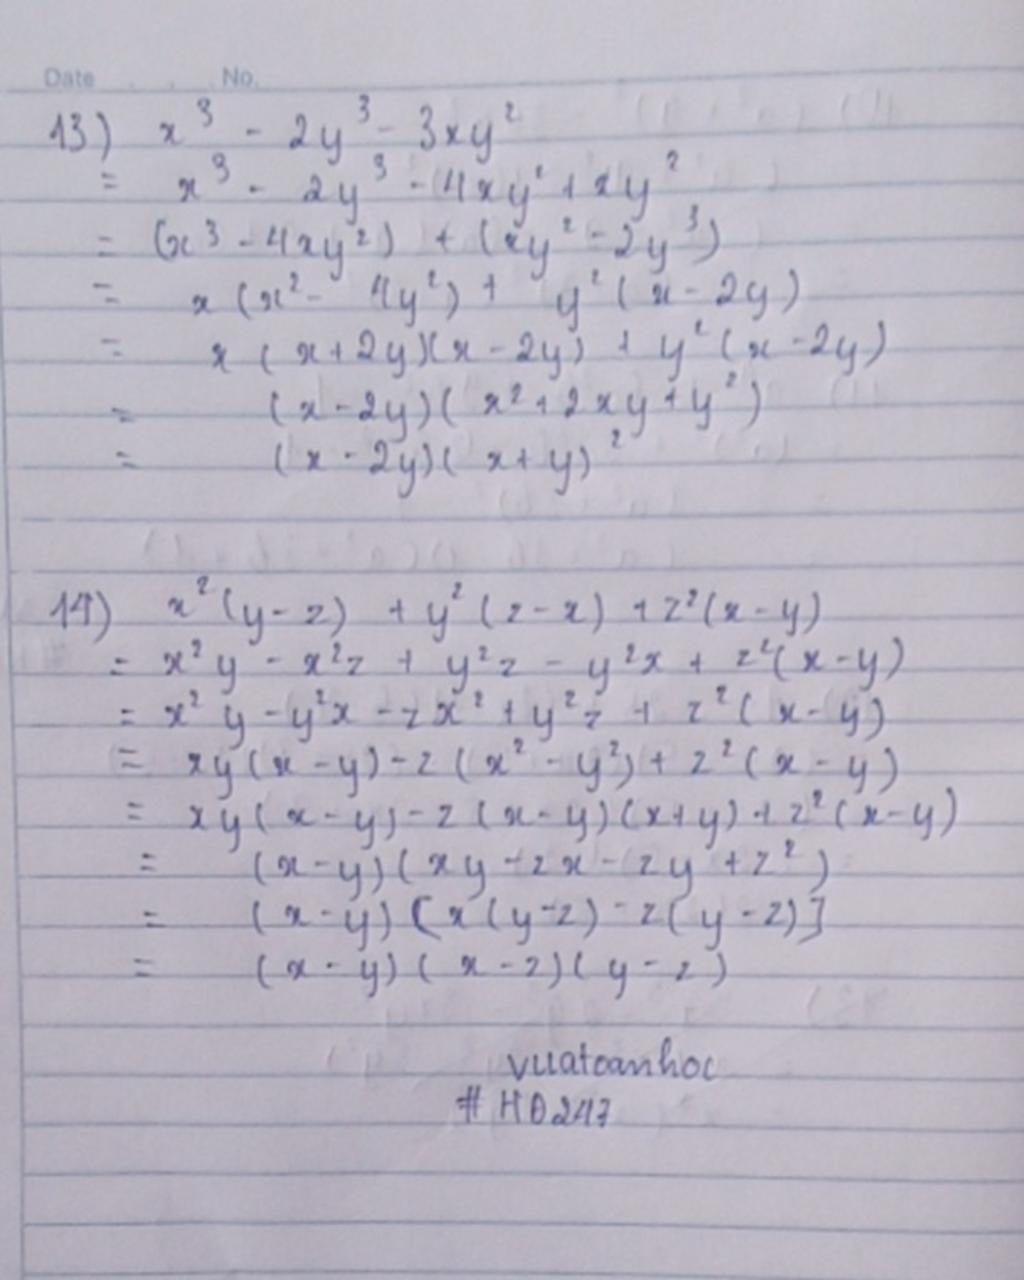 Date . . . No.
13) x³ - 2y³ - 3xy²
= x³ - 2y³ - 4xy² + xy²
= (x³ - 4xy²) + (xy² - 2y³)
= x (x² - 4y²) + y² (x - 2y)
= x (x + 2y)(x - 2y) + y² (x - 2y)
= (x - 2y)(x² + 2xy + y²)
= (x - 2y)(x + y)²
14) x² (y - z) + y² (z - x) + z² (x - y)
= x²y - x²z + y²z - y²x + z² (x - y)
= x²y - y²x - zx² + y²z + z² (x - y)
= xy (x - y) - z (x² - y²) + z² (x - y)
= xy (x - y) - z (x - y)(x + y) + z² (x - y)
= (x - y)(xy - zx - zy + z²)
= (x - y) [x (y - z) - z (y - z)]
= (x - y)(x - z)(y - z)
vuatoanhoc
# HĐ247